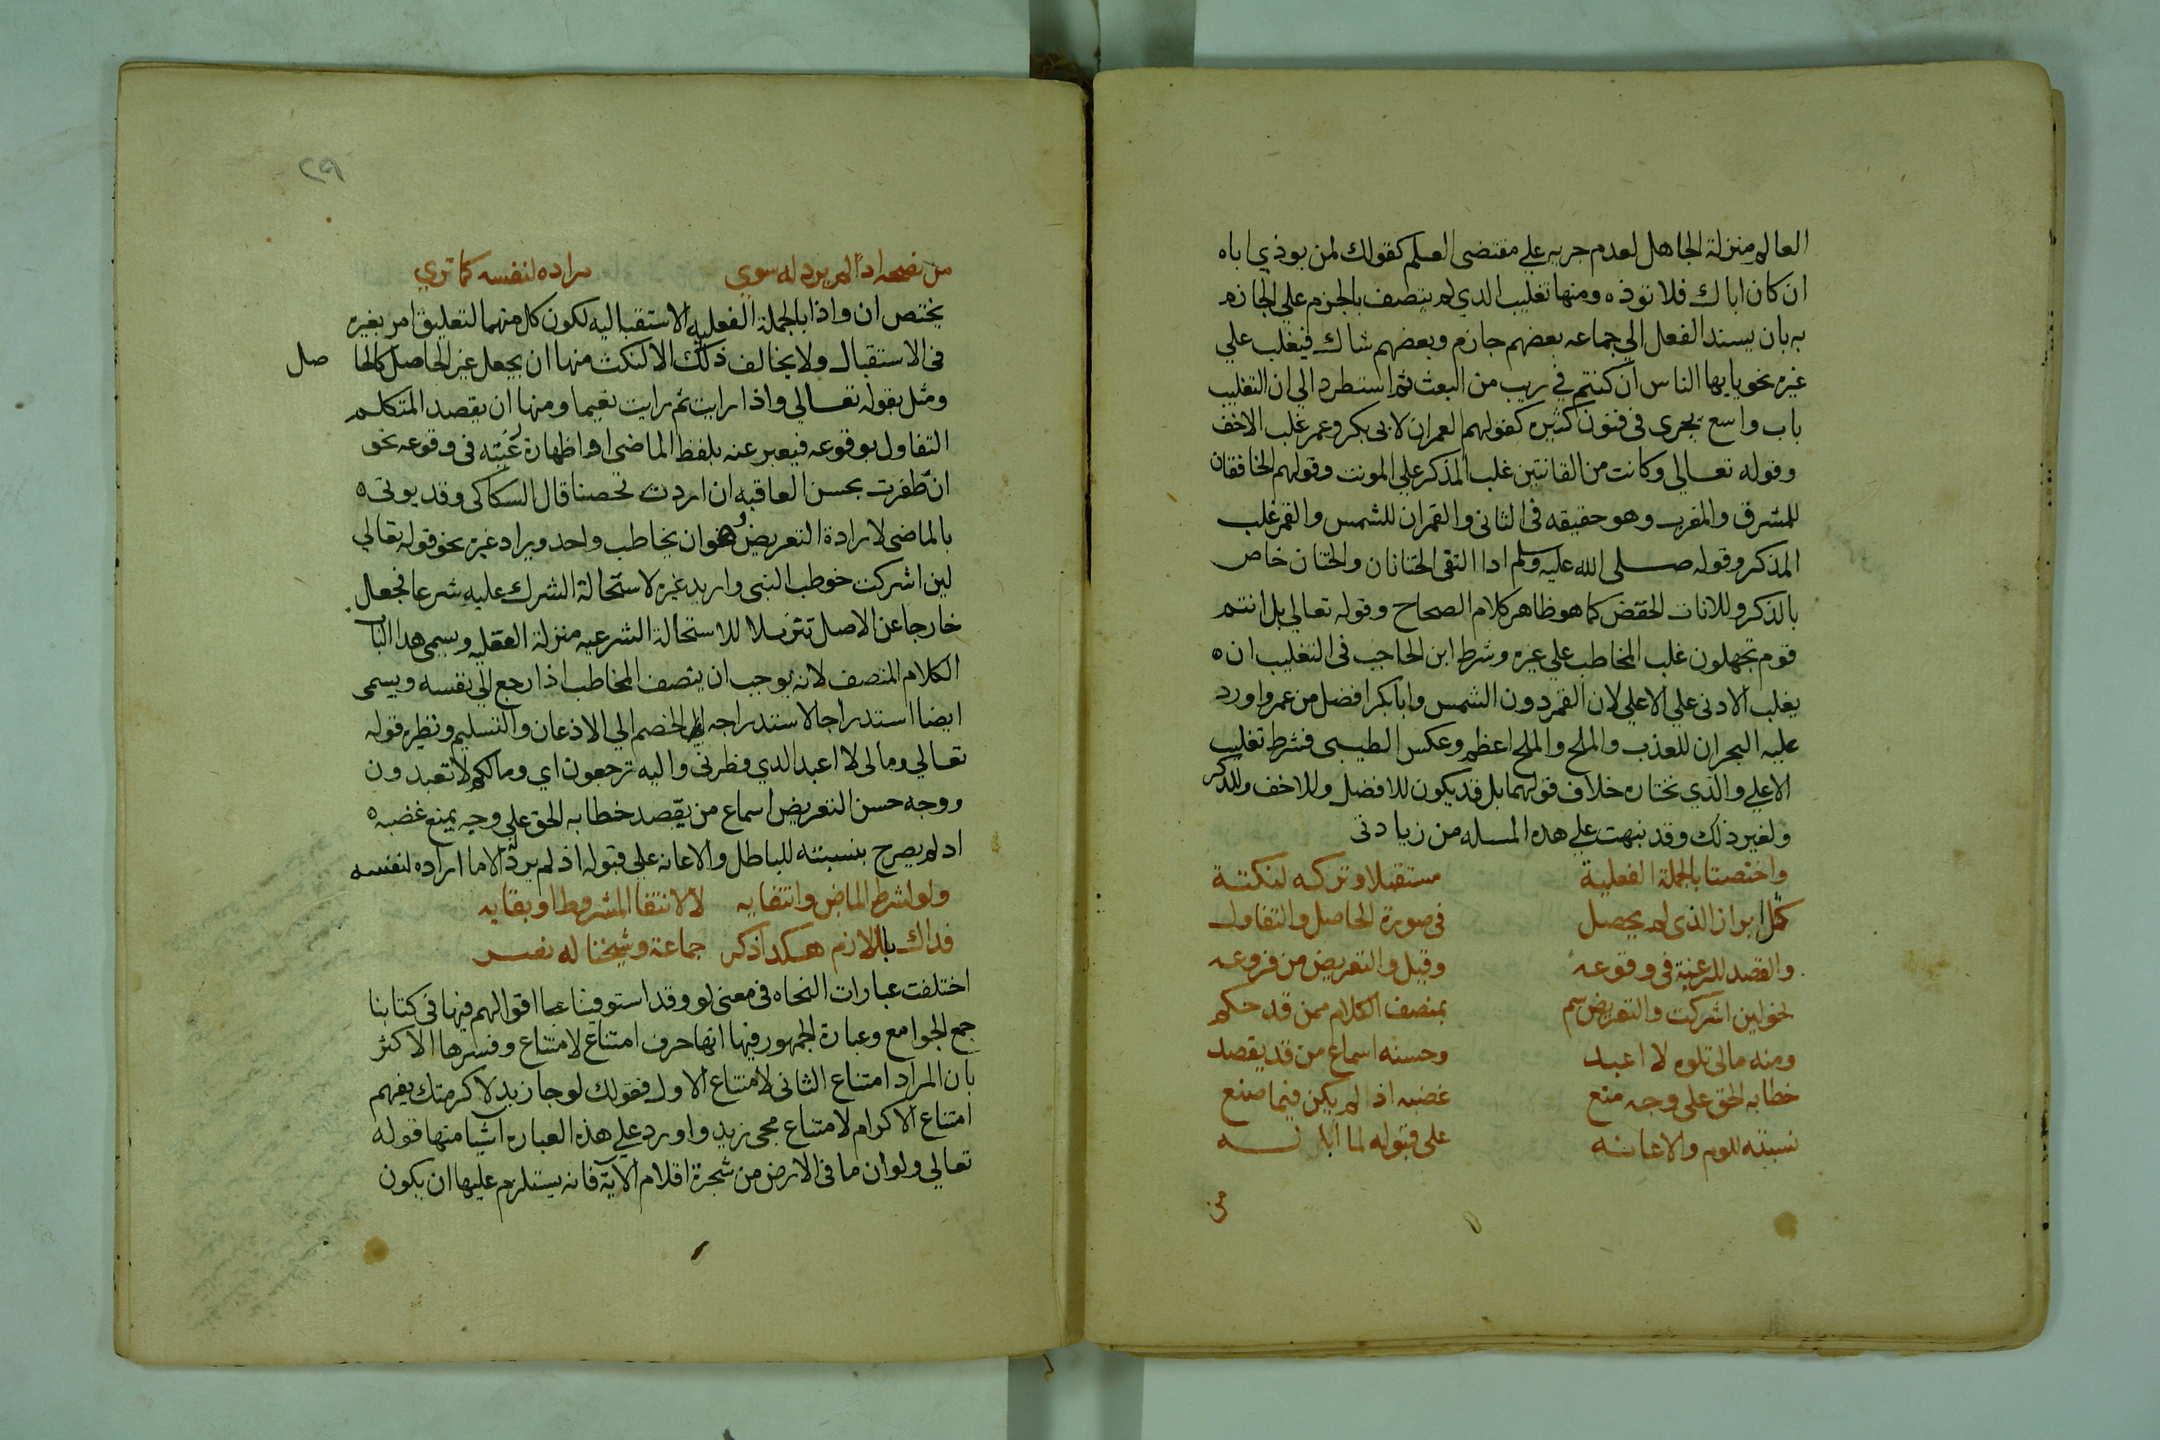 العالم منزلة الجاهل لعدم جريه علي مقتضى العلم كقولك لمن يوذي اباه
ان كان اباك فلا توذه ومنها تغليب الذي لم يتصف بالجزم علي الجازم
به بان يسند الفعل الي جماعه بعضهم جازم وبعضهم شاك فيغلب علي
غيره نحو يايها الناس ان كنتم في ريب من البعث ثم استطرد الي ان التغليب
باب واسع يجرى فى فنون كثيره كقولهم العمران لابى بكر وعمر غلب الاخف
وقوله تعالي وكانت من القانتين غلب المذكر علي المونث وقولهم الخافقان
للمشرق والمغرب وهو حقيقه فى الثانى والقمران للشمس والقمر غلب
المذكر وقوله صلى الله عليه وسلم اذا التقى الختانان والختان خاص
بالذكر وللاناث الخفض كما هو ظاهر كلام الصحاح وقوله تعالي بل انتم
قوم تجهلون غلب المخاطب علي غيره وشرط ابن الحاجب فى التغليب ان ه
يغلب الادنى علي الاعلي لان القمر دون الشمس وابا بكر افضل من عمر واورد
عليه البحران للعذب والملح والملح اعظم وعكس الطيبى فشرط تغليب
الاعلي والذي نختاره خلاف قولهما بل قد يكون للافضل وللاخف وللذكر
ولغير ذلك وقد نبهت علي هذه المسله من زيادتى
واختصتا بالجملة الفعلية مستقبلا وتركه لنكتة
كمثل ابراز الذى لم يحصل فى صورة الحاصل والتفاول
والقصد للرغبة فى وقوعه وقيل والتعريض من فروعه
نحو لين اشركت والتعريض سم بمنصف الكلام ممن قد حكم
ومنه مالى تلوه لا اعبد وحسنه اسماع من قد يقصد
خطابه الحق علي وجه منع غضبه اذ لم يكن فيما صنع
نسبته للوم والاعانه على قبوله لما ابانه
من
٢٩
من نصحه اذ لم يرد له سوي مراده لنفسه كما تري
يختص ان واذا بالجملة الفعليه الاستقباليه لكون كل منهما لتعليق امر بغيره
فى الاستقبال ولا يخالف ذلك الا لنكت منها ان يجعل غير الحاصل كالحا صل
ومثل بقوله تعالي واذا رايت ثم رايت نعيما ومنها ان يقصد المتكلم
التفاول بوقوعه فيعبر عنه بلفظ الماضى او اظهار رغبته فى وقوعه نحو
ان ظفرت بحسن العاقبه ان اردن تحصنا قال السكاكى وقد يوتى ه
بالماضى لارادة التعريض وهو ان يخاطب واحد ويراد غيره نحو قوله تعالي
لين اشركت خوطب النبى واريد غيره لاستحالة الشرك عليه شرعا فجعل
خارجا عن الاصل تنزيلا للاستحالة الشرعيه منزلة العقليه ويسمى هذا الباب
الكلام المنصف لانه يوجب ان ينصف المخاطب اذا رجع الي نفسه ويسمى
ايضا استدراجا لاستدراجه الخصم الي الاذعان والتسليم ونظيره قوله
تعالي ومالى لا اعبد الذي فطرنى واليه ترجعون اي ومالكم لا تعبدون
ووجه حسن التعريض اسماع من يقصد خطابه الحق علي وجه يمنع غضبه ه
اذ لم يصرح بنسبته للباطل والاعانه علي قبوله اذ لم يرد له الا ما اراده لنفسه
ولو لشرط الماض وانتفايه لا لانتفا المشروط او بقايه
فذاك باللازم هكذا ذكر جماعة وشيخنا له نصر
اختلفت عبارات النحاه فى معنى لو وقد استوفينا اقوالهم فيها فى كتابنا
جمع الجوامع وعبارة الجمهور فيها انها حرف امتناع لامتناع وفسرها الاكثر
بان المراد امتناع الثانى لامتناع الاول فقولك لو جا زيد لاكرمتك يفهم
امتناع الاكرام لامتناع مجى زيد واورد علي هذه العباره اشيا منها قوله
تعالي ولو ان ما فى الارض من شجرة اقلام الآية فانه يستلزم عليها ان يكون